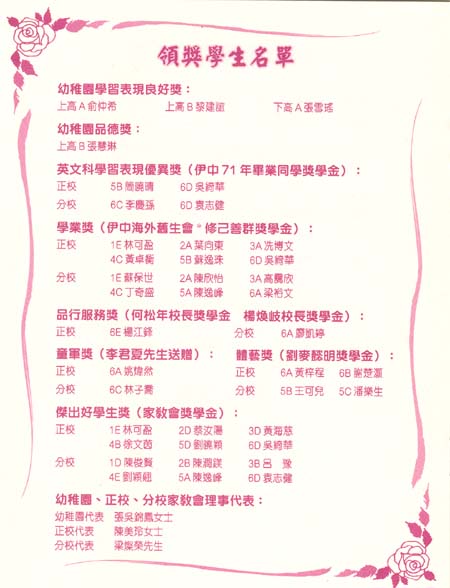 領獎學生名單
幼稚園學習表現良好獎：
上高A俞仲希 上高B黎建誼 下高A張雪瑤
幼稚園品德獎：
上高B張慧琳
英文科學習表現優異獎（伊中71年畢業同學獎學金）：
正校 5B周曉晴 6D吳綺華
分校 6C李慶孫 6D袁志健
學業獎（伊中海外舊生會®修己善群獎學金）：
正校 1E林可盈 2A葉向東 3A冼博文
4C黃卓衡 5B蘇逸珠 6D吳綺華
分校 1E蘇保世 2A陳欣怡 3A高
4C丁奇盛 5A陳逸峰 6A梁裕文
品行服務獎（何松年校長獎學金 楊煥岐校長獎學金）：
正校 6E楊江鋒 分校 6A廖凱婷
童軍獎（李君夏先生送贈）： 體藝獎（劉麥懿明獎學金）：
正校 6A姚煒然 正校 6A黃梓程 6B謝楚灝
分校 6C林子喬 分校 5B王可兒 5C潘樂生
傑出好學生獎（家教會獎學金）：
正校 1E林可盈 2D蔡汝湯 3D黃海慈
4B徐文茵 5D劉曉穎 6D吳綺華
分校 1D陳俊賢 2B陳潤鎂 3B呂 豫
4E劉穎翹 5A陳逸峰 6D袁志健
幼稚園、正校、分校家教會理事代表：
幼稚園代表 張吳錦鳳女士
正校代表 陳美珍女士
分校代表 梁燦榮先生